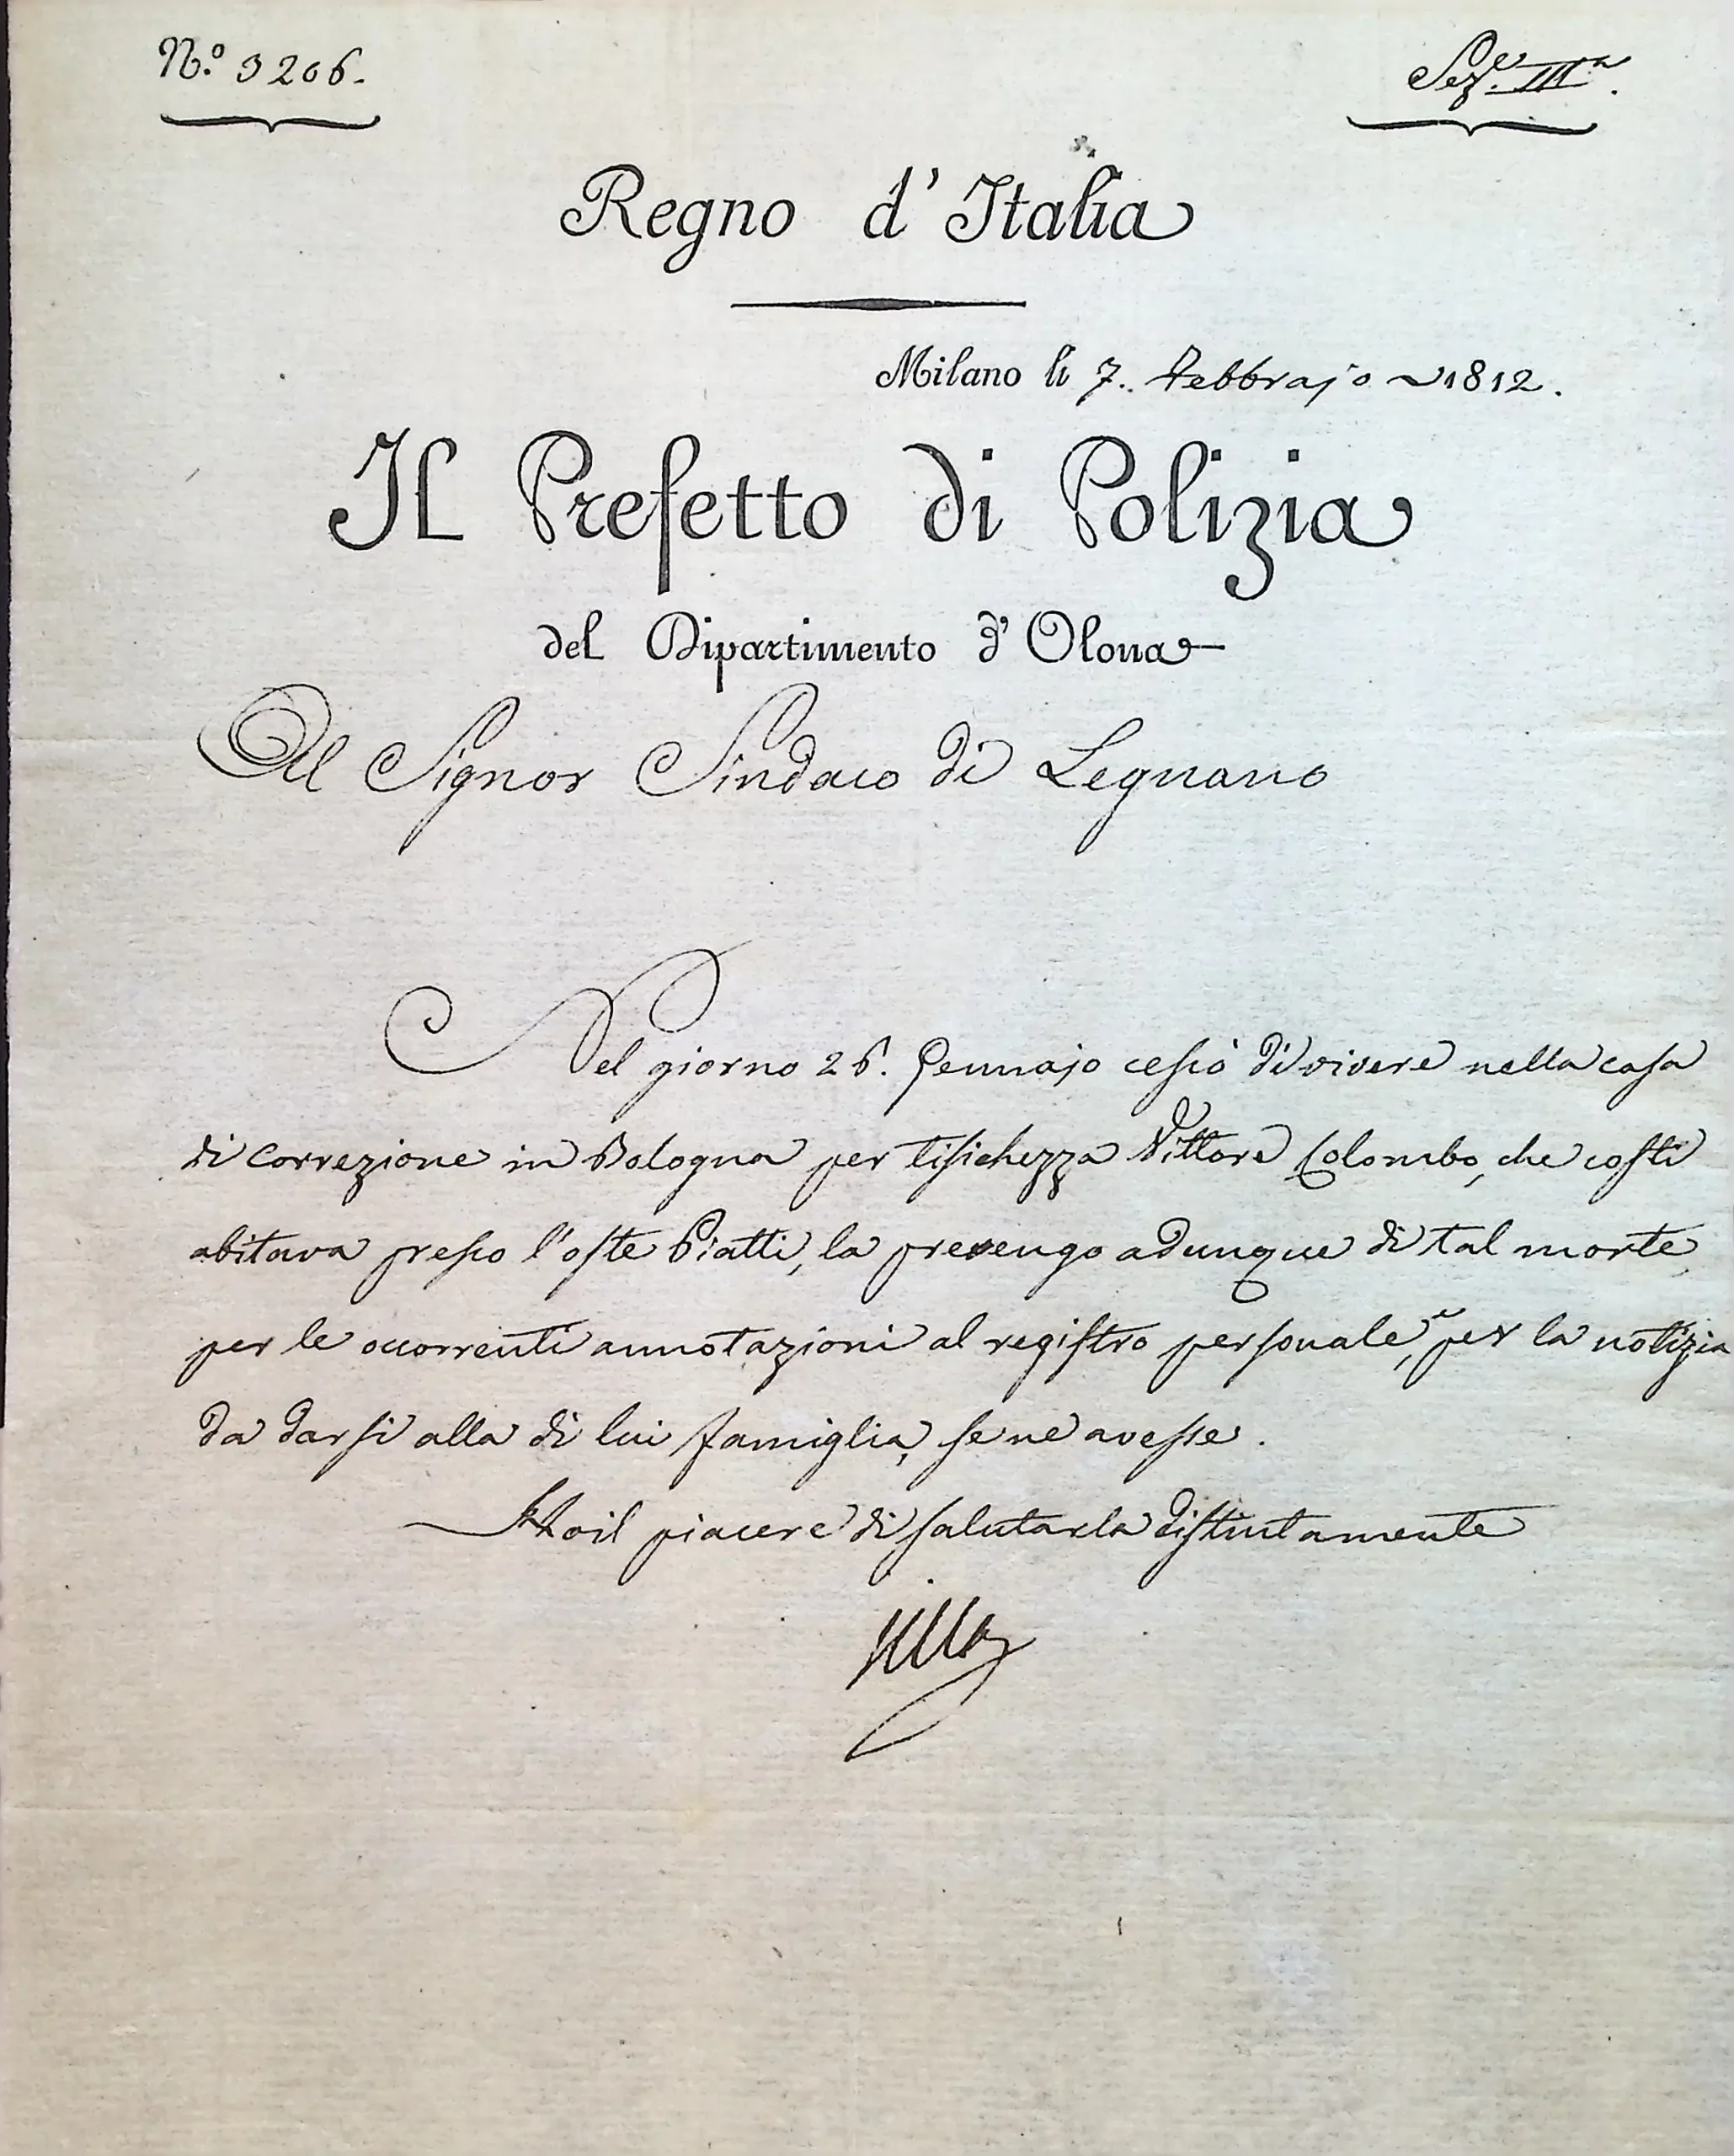 N.º 3206.
Sez.e IIIa.
Regno d'Italia
Milano li 7. Febbrajo 1812.
Il Prefetto di Polizia
del Dipartimento d'Olona
Al Signor Sindaco di Legnano
Nel giorno 26. Gennajo cessò di vivere nella casa
di correzione in Bologna per tisichezza Vittore Colombo, che costì
abitava presso l'oste Piatti, la prevengo adunque di tal morte
per le occorrenti annotazioni al registro personale, e per la notizia
da darsi alla di lui famiglia, se ne avesse.
Ho il piacere di salutarla distintamente
Villa